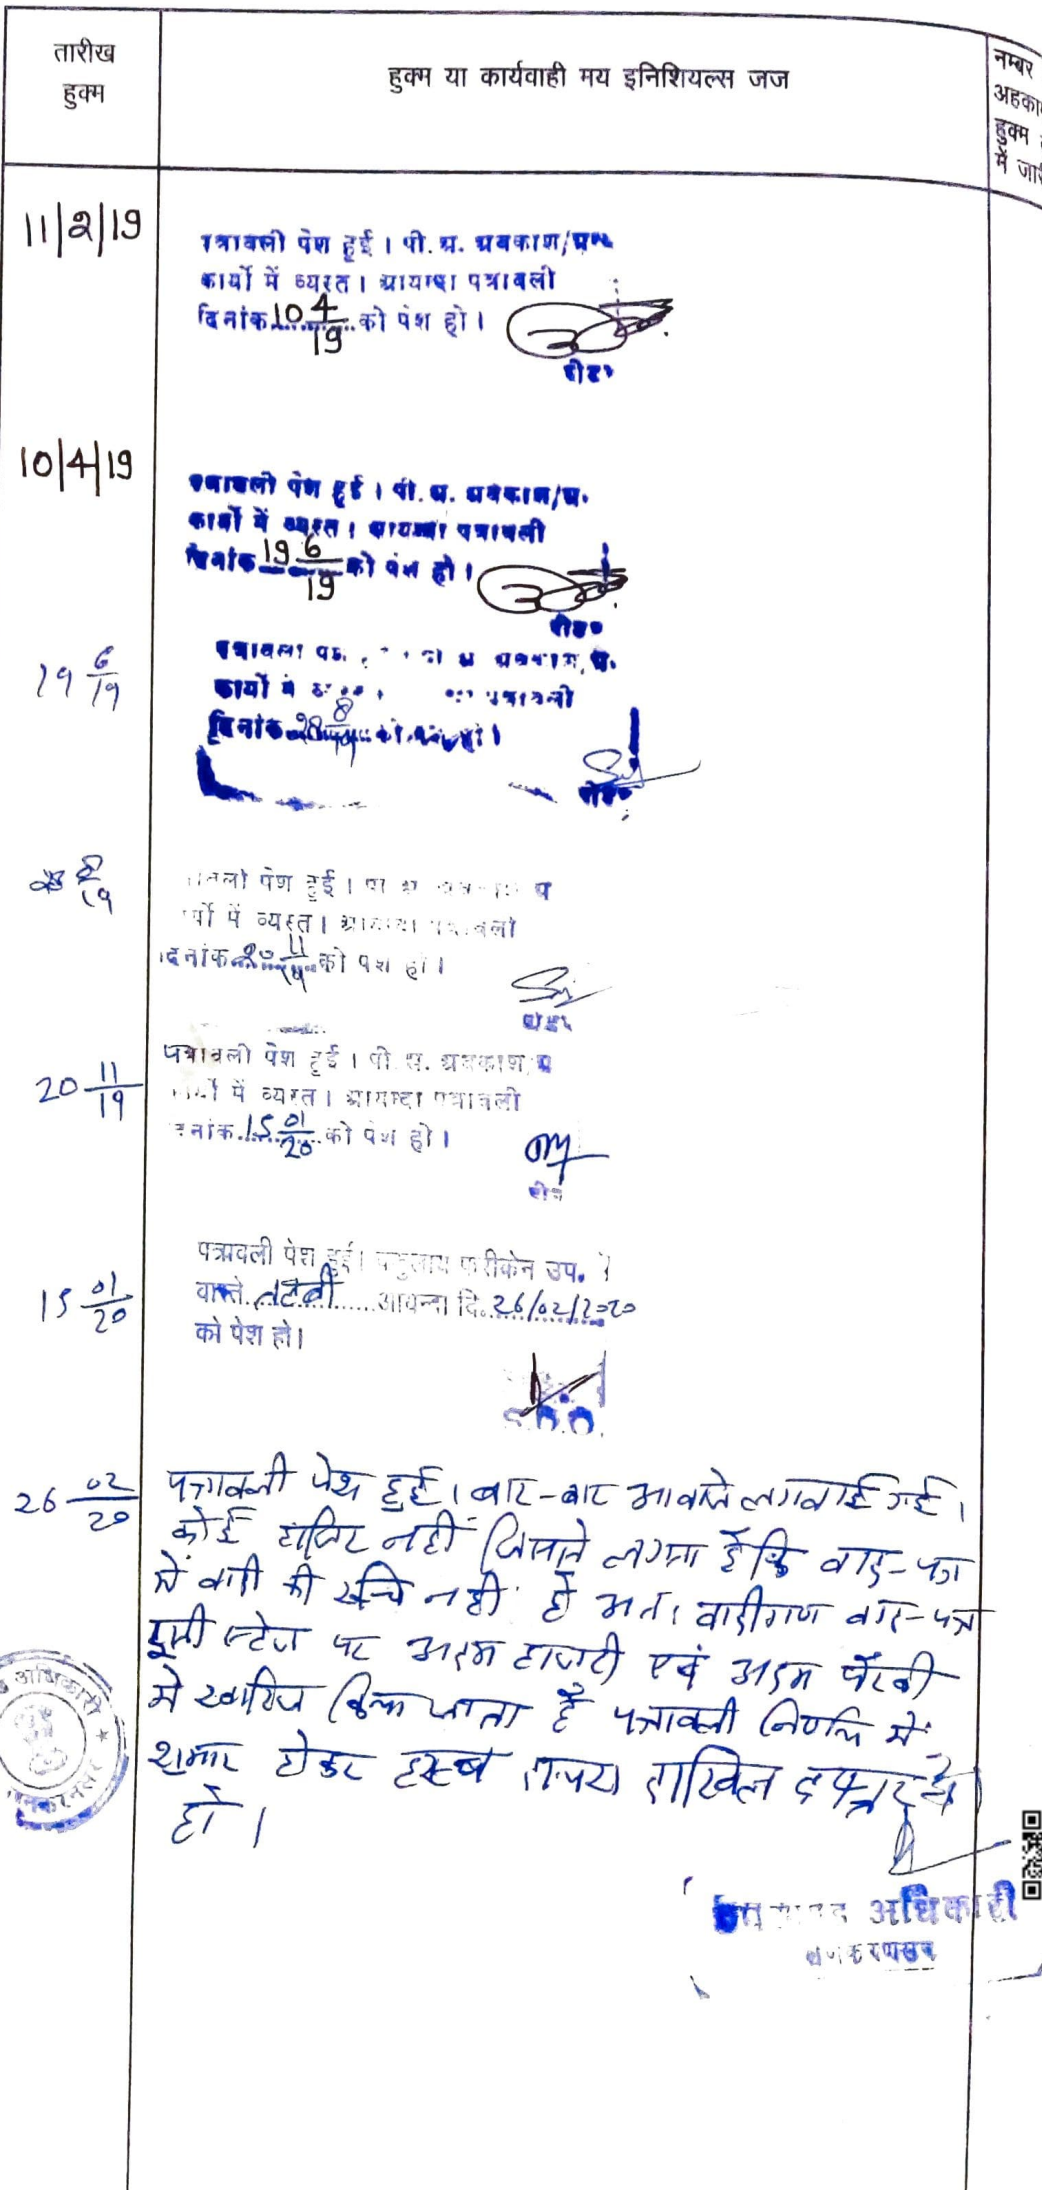 तारीख
हुक्म
हुक्म या कार्यवाही मय इनिशियल्स जज
नम्बर
अहका
हुक्म
में जारी
11/2/19
पत्रावली पेश हुई । पी.अ. अवकाश/प्र
कार्यों में व्यस्त । आयन्दा पत्रावली
दिनांक 10 4/19 को पेश हो ।
रीडर
10/4/19
पत्रावली पेश हुई । पी.अ. अवकाश/प्र.
कार्यों में व्यस्त । आयन्दा पत्रावली
दिनांक 19 6/19 को पेश हो ।
रीडर
19 6/19
पत्रावली अवकाश प्र.
कार्यों में पत्रावली
दिनांक 28 8/19 को पेश हो ।
रीडर
28 8/19
पेश हुई ।
में व्यस्त । आयन्दा पत्रावली
दिनांक 20 11/19 को पेश हो ।
रीडर
20 11/19
पत्रावली पेश हुई । पी.अ. अवकाश प्र
में व्यस्त । आयन्दा पत्रावली
दिनांक 15 01/20 को पेश हो ।
15 01/20
पत्रावली पेश हुई। फरीकेन उप.
वास्ते तलबी आयन्दा दि. 26/02/2020
को पेश हो।
26 02/20
पत्रावली पेश हुई। बार-बार आवाजे लगवाई गई।
कोई हाजिर नहीं जिससे लगता है कि वाद-पत्र
में वादी की रूचि नही है अतः वादीगण वाद-पत्र
इसी स्टेज पर अदम हाजरी एवं अदम पैरवी
मे खारिज किया जाता है पत्रावली निर्णय में
शुमार होकर दाखिल दफ्तर
हो ।
अधिकारी
अधिकारी